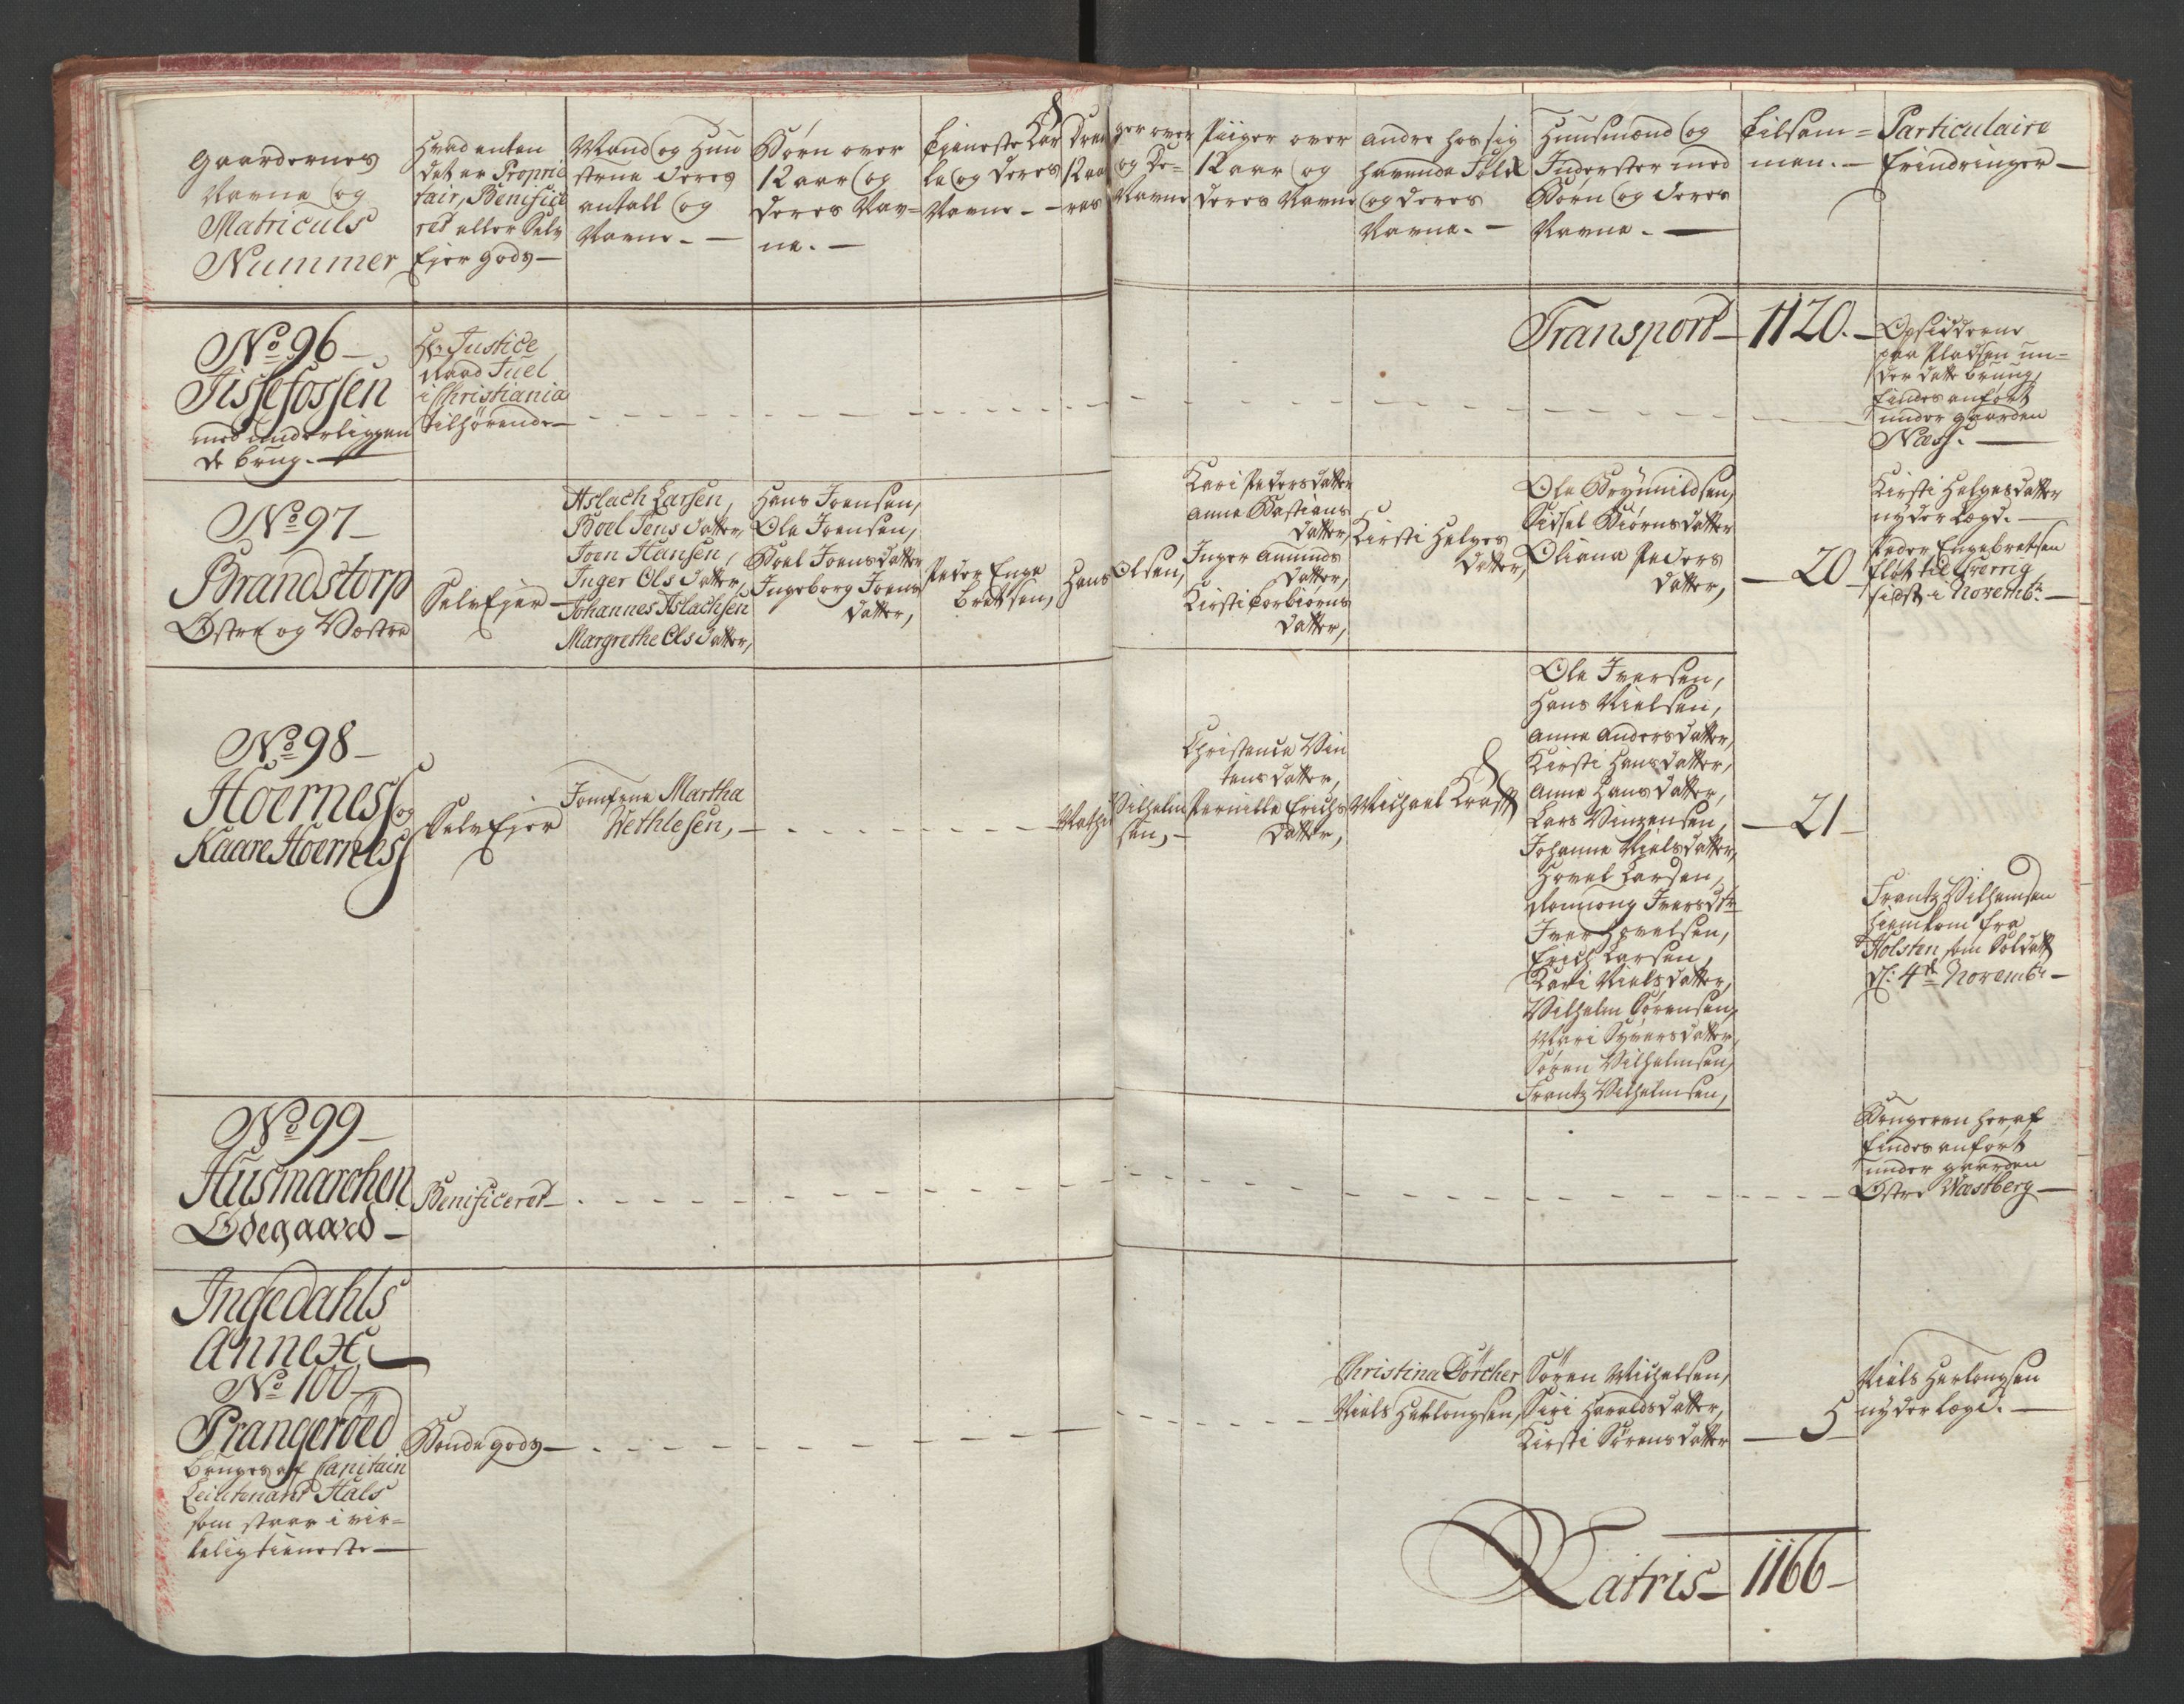 Gaardernes
Navne og
Matriculs
Nummer
Hvad enten
det er Proprie
tair, Benifice
ret eller Selv
Ejer Gods —
Mand og Huu
strue deres
antall og
Navne. —
Børn over
12 aar og
deres Nav=
ne. —
Tieneste Kar
le og deres
Navne. —
Dren
12 aa
res
ger over
og de=
Navne
Piiger over
12 aar og
deres Navne
andre hos sig
havende Folk
og deres
Navne. —
Huusmænd og
Inderster med
Børn og deres
Navne. —
Tilsam=
men. —
Particulaire
Erindringer —
Transport — 1120. —
No 96 —
Tissefossen
med underliggen
de brug. —
Hr. Justice
Raad Juel
i Christiania
tilhørende —
Opsidderne
paa Pladsen un=
der dette brug,
findes anført
under gaarden
Næss. —
No 97 —
Brandstorp
Østre og Vestre
Selv Ejer —
Aslach Larsen,
Boel Jens datter,
Joen Hansen,
Inger Ols datter,
Johannes Aslachsen
Margrethe Ols datter,
Hans Joensen,
Ole Joensen,
Boel Joensdatter
Ingeborg Joens
datter,
Peder Enge
bretsen,
Hans Olsen,
Kari Pedersdatter
Anne Bastians
datter,
Inger Amunds
datter,
Kirsti Torbiørns
datter,
Kirsti Helges
datter,
Ole Brynnildsen,
Sidsel Biørnsdatter
Oliana Peders
datter,
— 20 —
Kirsti Helgesdatter
nyder Lægd. —
Peder Engebretsen
fløt til Sverrig
sidst i Novembr. —
No 98 —
Hoerness og
Kaare Hoerness
Selv Ejer
Jomfrue Martha
Vethlesen, —
Mathis Vilhelm
sen, —
Christence Vin
tens datter,
Pernille Erichs
datter,
Michael Krafft
Ole Iversen,
Hans Nielsen,
Anne Andersdatter,
Kirsti Hansdatter,
Anne Hansdatter,
Lars Vinzensen,
Johanne Nielsdatter,
Hovel Larsen,
Iversdtr
Iver Hovelsen,
Erich Larsen,
Kari Nielsdatter,
Vilhelm Sørensen,
Mari Syversdatter,
Søren Vilhelmsen,
Frantz Vilhelmsen,
— 21 —
Frantz Vilhemsen
hiemkom fra
Holsten som Soldatt
d: 4de Novembr —
No 99 —
Husmarchen
Ødegaard —
Benificeret —
Brugeren heraf
findes anført
under gaarden
Østre Westberg —
Ingedahls
Annex
No 100 —
Prangerød
bruges af Capitain
Leiutenant Hals
som staar i vir=
kelig tieneste —
Bonde gods —
Christina Börcher
Niels Herlougsen,
Søren Michelsen,
Siri Haraldsdatter,
Kirsti Sørensdatter
— 5
Niels Herlougsen
nyder Lægd. —
Latris — 1166 —